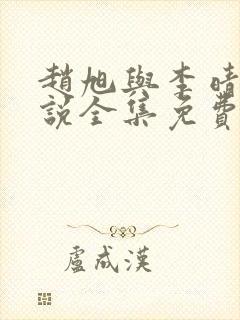 趙旭與李晴
說全集免費
盧成漢